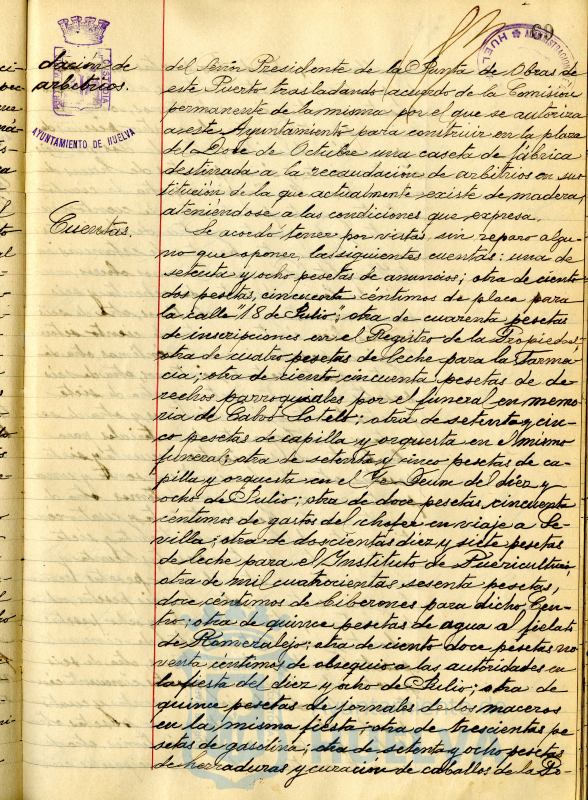 69
AYUNTAMIENTO DE HUELVA
ADMINISTRACION
HUEL
dación de
arbitrios.
del Señor Presidente de la Junta de Obras de
este Puerto trasladando acuerdo de la Comisión
permanente de la misma por el que se autoriza
a este Ayuntamiento para construir en la plaza
del Doce de Octubre una caseta de fábrica
destinada a la recaudación de arbitrios en sus
titución de la que actualmente existe de madera,
ateniéndose a las condiciones que expresa.
Cuentas.
Se acordó tener por vistas, sin reparo algu-
no que oponer, las siguientes cuentas: una de
setenta y ocho pesetas de anuncios; otra de ciento
dos pesetas, cincuenta céntimos de placa para
la calle 18 de Julio; otra de cuarenta pesetas
de inscripciones en el Registro de la Propiedad;
otra de cuatro pesetas de leche para la Farma
cia; otra de ciento cincuenta pesetas de de-
rechos parroquiales por el funeral en memo-
ria de Calvo Sotelo; otra de setenta y cin-
co pesetas de capilla y orquesta en el mismo
funeral; otra de setenta y cinco pesetas de ca-
pilla y orquesta en el Te Deum del diez y
ocho de Julio; otra de doce pesetas, cincuenta
céntimos de gastos del chofer en viaje a Se-
villa; otra de doscientas diez y siete pesetas
de leche para el Instituto de Puericultura;
otra de mil cuatrocientas sesenta pesetas,
doce céntimos de biberones para dicho Cen-
tro; otra de quince pesetas de agua al fielato
de Romeralejo; otra de ciento doce pesetas no
venta céntimos, de obsequio a las autoridades en
la fiesta del diez y ocho de Julio; otra de
quince pesetas de jornales de los maceros
en la misma fiesta; otra de trescientas pe
setas de gasolina; otra de setenta y ocho pesetas
de herraduras y curación de caballos de la Po-